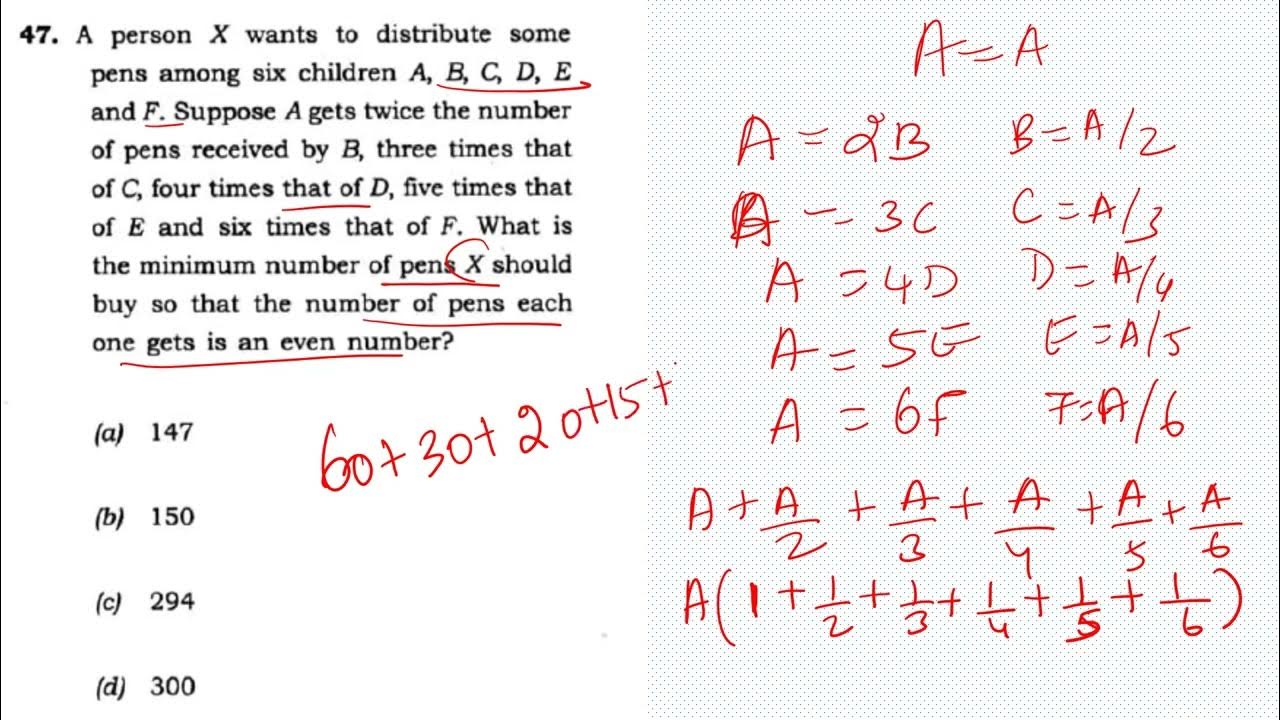 47. A person X wants to distribute some
pens among six children A, B, C, D, E
and F. Suppose A gets twice the number
of pens received by B, three times that
of C, four times that of D, five times that
of E and six times that of F. What is
the minimum number of pens X should
buy so that the number of pens each
one gets is an even number?
(a) 147
(b) 150
(c) 294
(d) 300
60+30+20+15+
A=A
A=2B B=A/2
A=3C C=A/3
A=4D D=A/4
A=5E E=A/5
A=6F F=A/6
A+A/2+A/3+A/4+A/5+A/6
A(1+1/2+1/3+1/4+1/5+1/6)